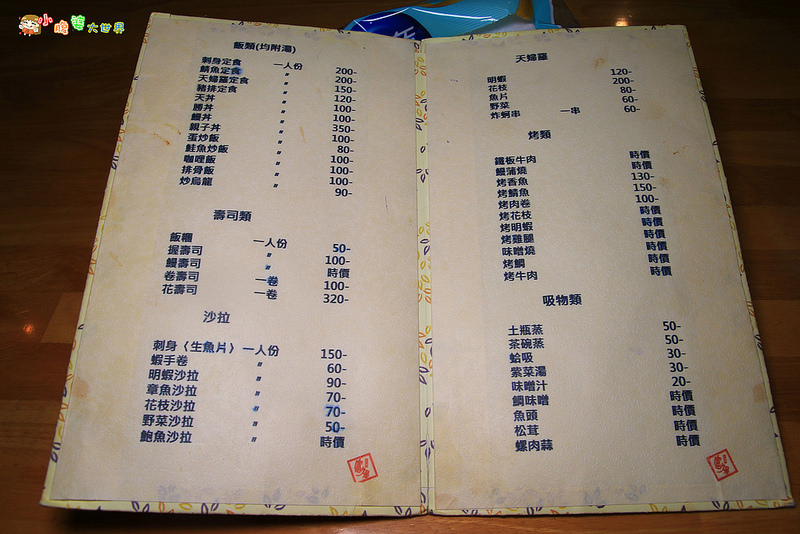 小瞻鶯大世界
飯類(均附湯)
刺身定食 一人份 200-
鯖魚定食 〃 200-
天婦羅定食 〃 150-
豬排定食 〃 120-
天丼 〃 100-
勝丼 〃 100-
鰻丼 〃 350-
親子丼 〃 100-
蛋炒飯 〃 80-
鮭魚炒飯 〃 100-
咖哩飯 〃 100-
排骨飯 〃 100-
炒烏龍 〃 90-
壽司類
飯糰 一人份 50-
握壽司 〃 100-
鰻壽司 〃 時價
卷壽司 一卷 100-
花壽司 一卷 320-
沙拉
刺身〈生魚片〉 一人份 150-
蝦手卷 〃 60-
明蝦沙拉 〃 90-
章魚沙拉 〃 70-
花枝沙拉 〃 70-
野菜沙拉 〃 50-
鮑魚沙拉 〃 時價
天婦羅
明蝦 120-
花枝 200-
魚片 80-
野菜 60-
炸蚵串 一串 60-
烤類
鐵板牛肉 時價
鰻蒲燒 時價
烤香魚 130-
烤鯖魚 150-
烤肉卷 100-
烤花枝 時價
烤明蝦 時價
烤雞腿 時價
味噌燒 時價
烤鯛 時價
烤牛肉 時價
吸物類
土瓶蒸 50-
茶碗蒸 50-
蛤吸 30-
紫菜湯 30-
味噌汁 20-
鯛味噌 時價
魚頭 時價
松茸 時價
螺肉蒜 時價